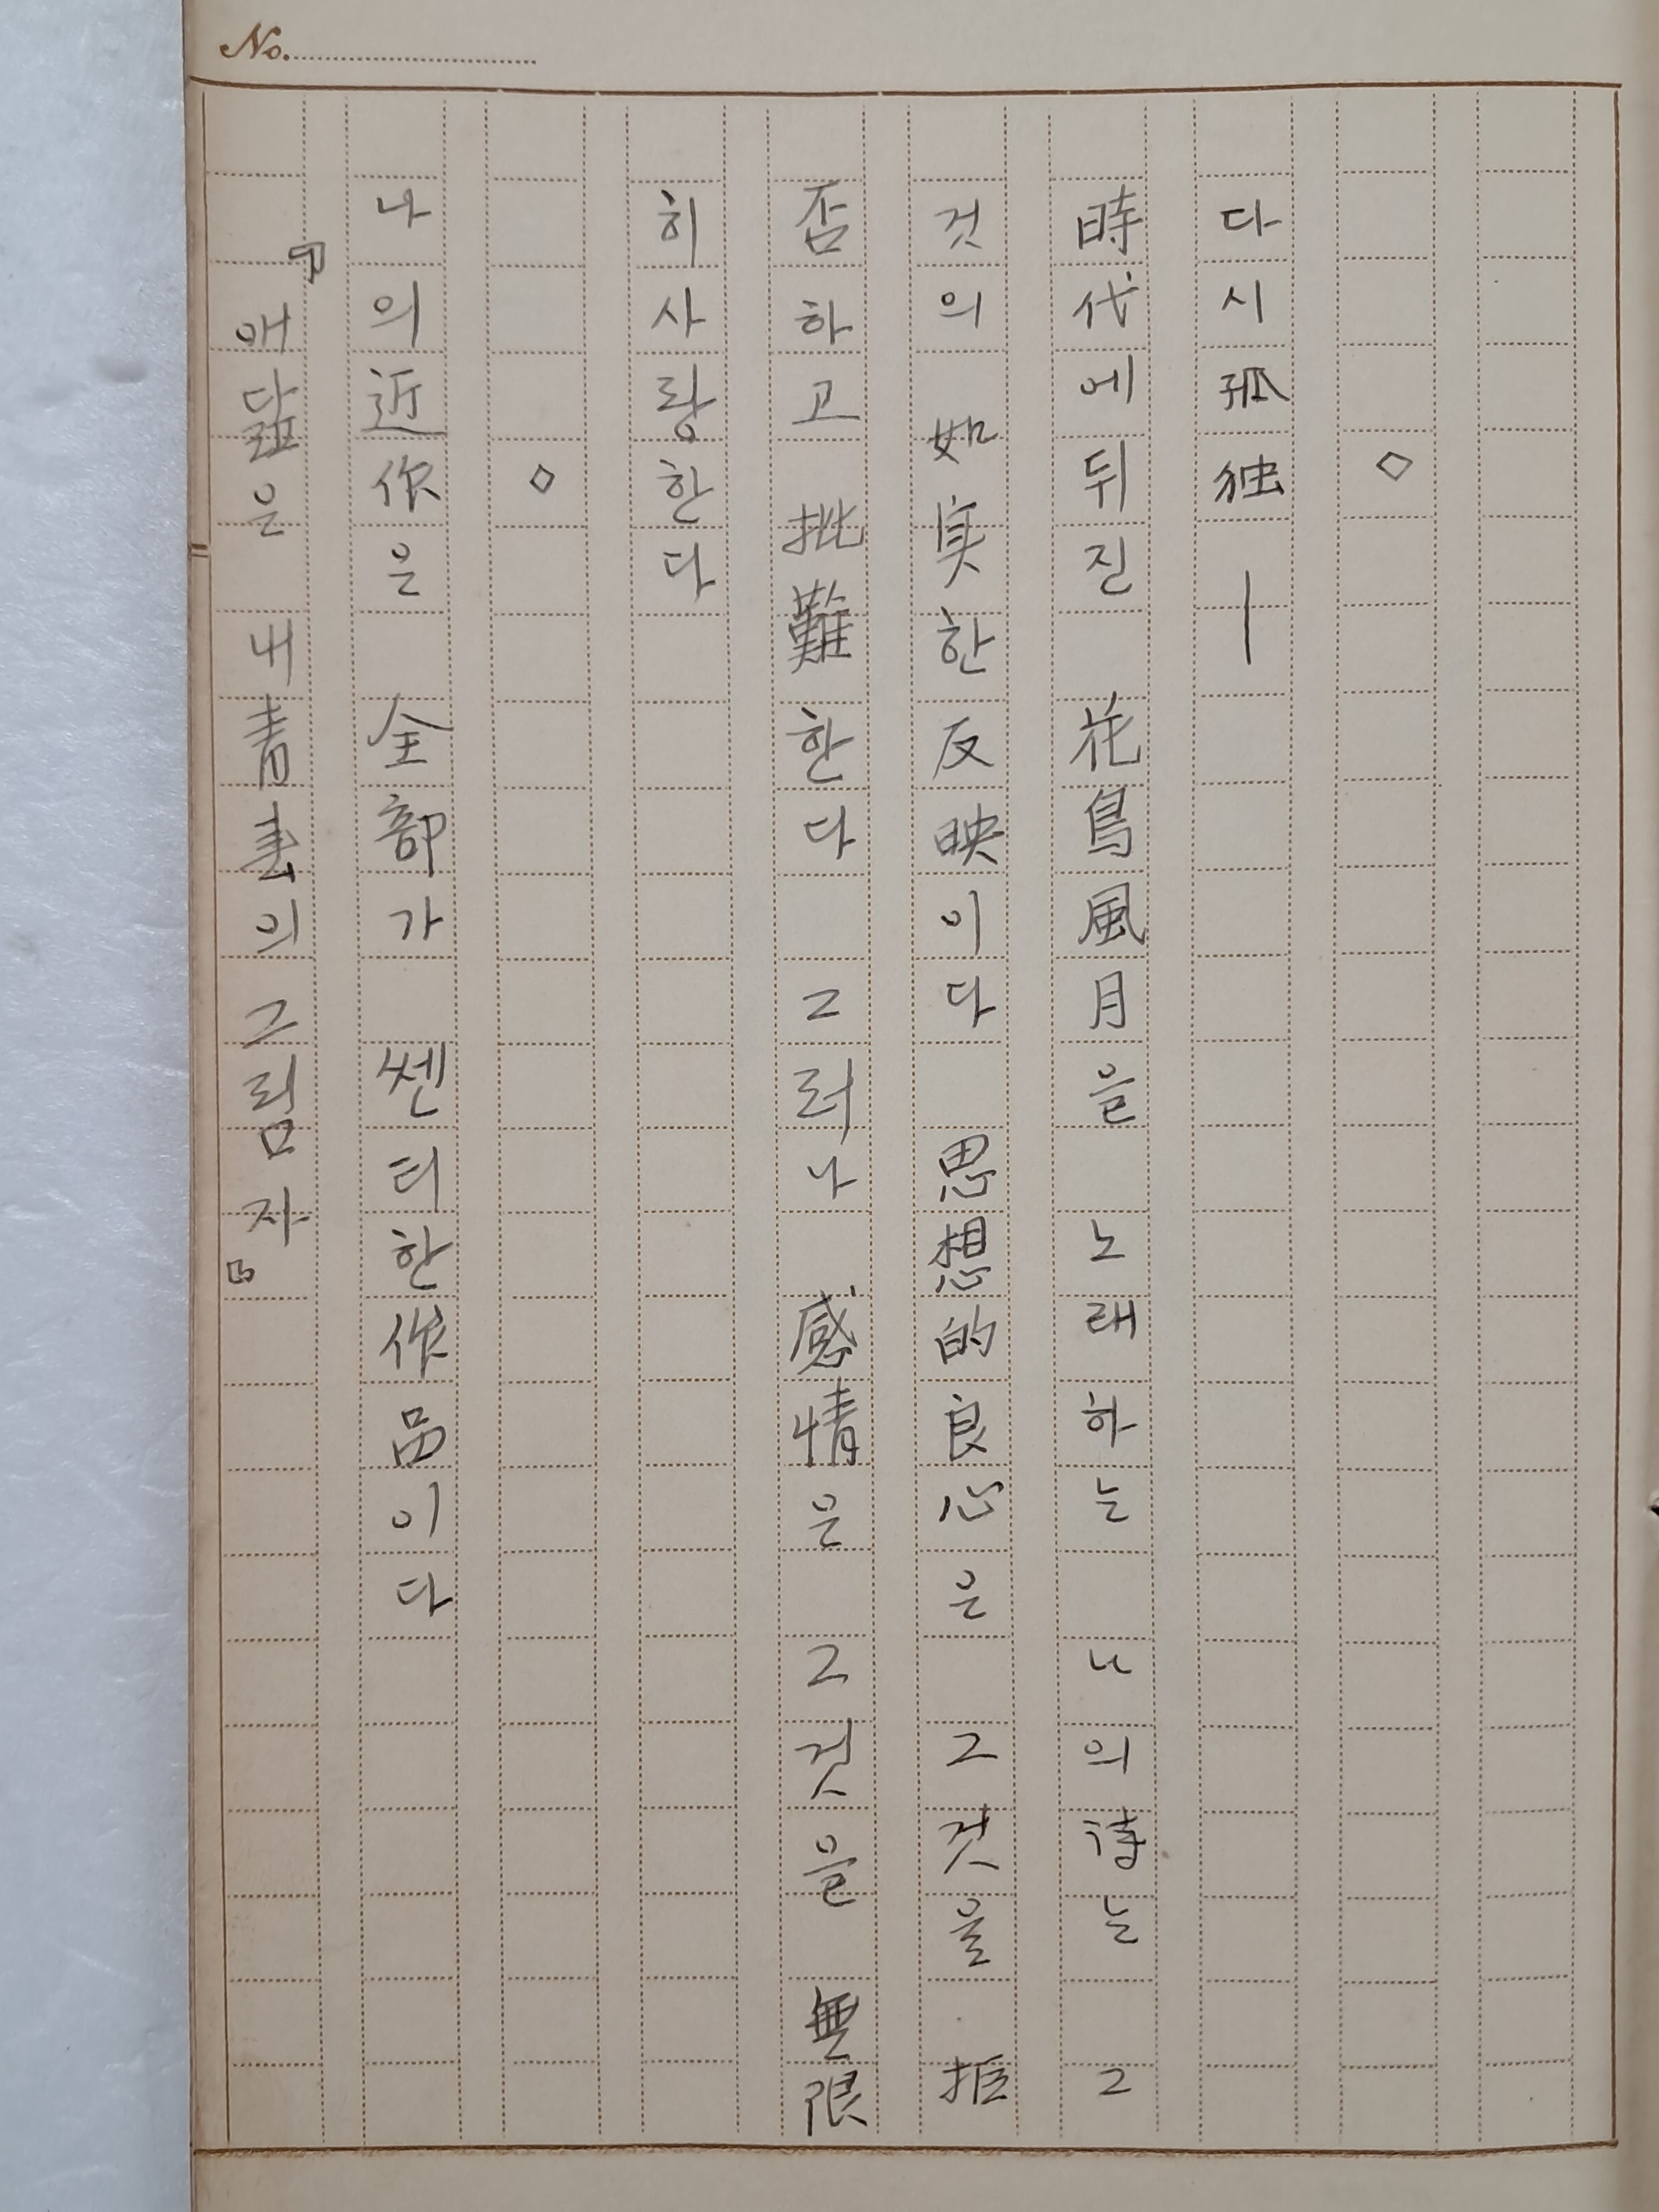 No.
◇
다시孤独 —
時代에뒤진 花鳥風月을 노래하는 나의詩는 그
것의 如実한反映이다 思想的良心은 그것을 拒
否하고 批難한다 그러나 感情은 그것을 無限
히사랑한다
◇
나의近作은 全部가 쎈티한作品이다
『애닲은 내靑春의 그림자』